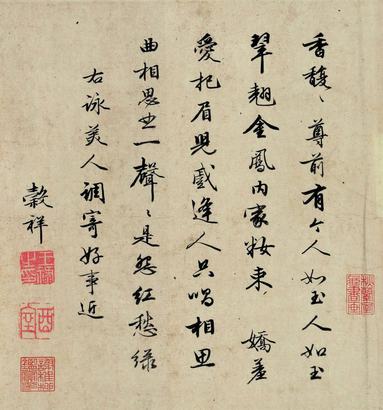 香馥〻尊前有个人如玉人如玉
翠翹金鳳内家粧束嬌羞
愛把眉兒逢人只唱相思
曲相思一聲〻是怨紅愁綠
右詠美人調寄好事近
穀祥
王祿之印
酉室